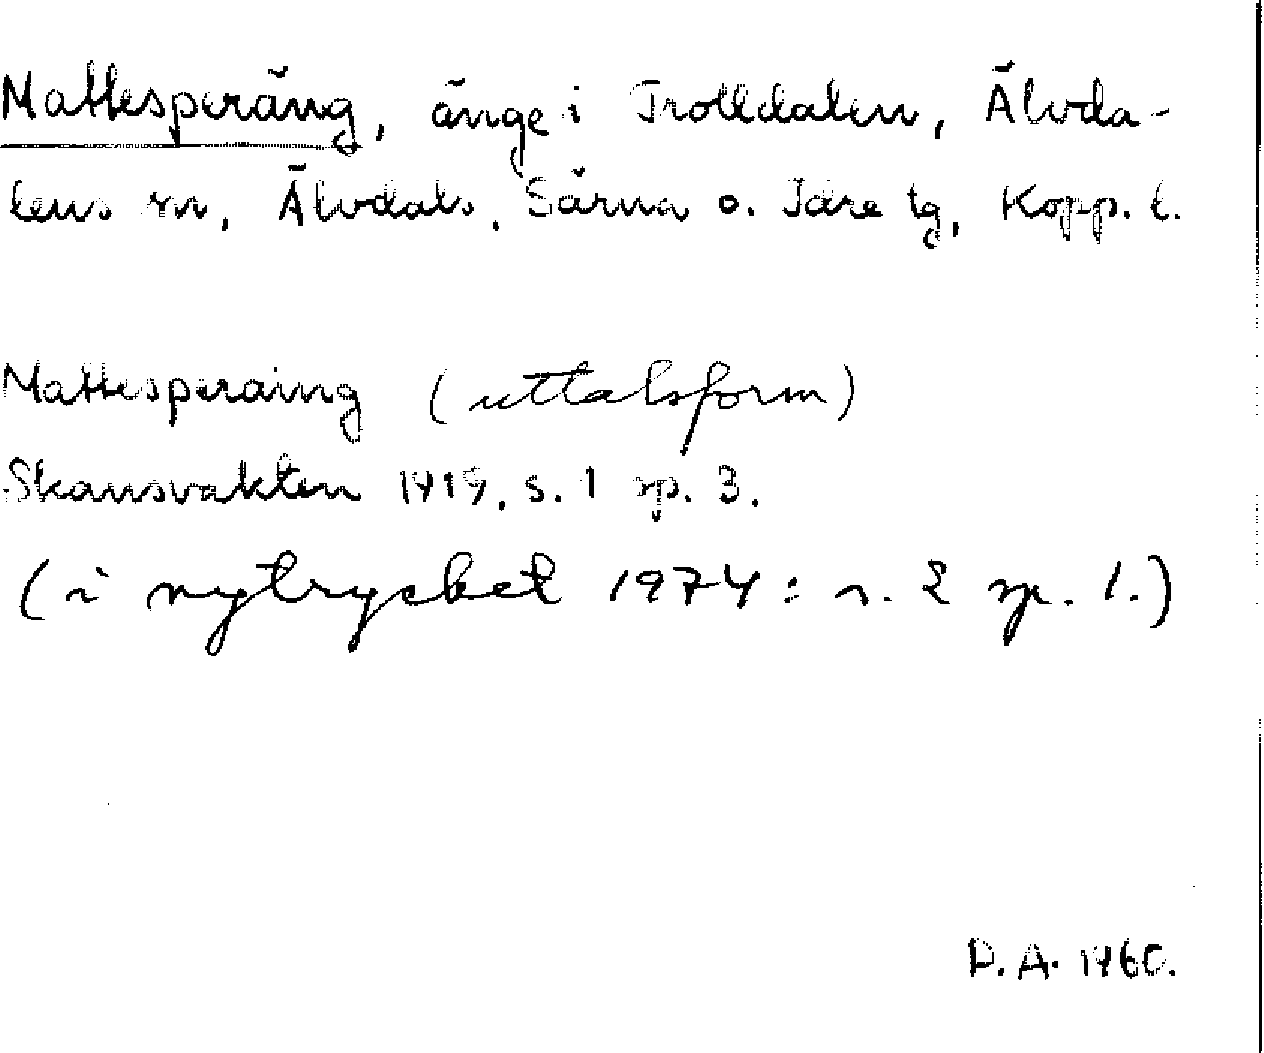 Mattesperäng, änge i Trolldalen, Älvda-
lens sn, Älvdals, Särna o. Idre tg, Kopp. l.
Mattesperaing (uttalsform)
Skansvakten 1919, s. 1 sp. 3.
(i nytrycket 1974: s. 2 sp. 1.)
D.A. 1960.